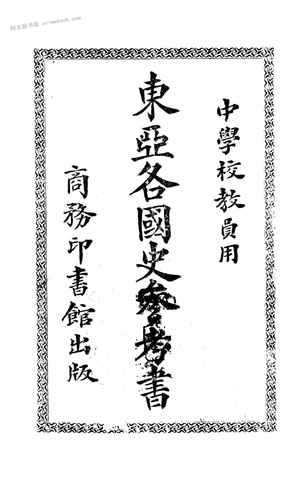 中學校教員用
東亞各國史參考書
商務印書館出版